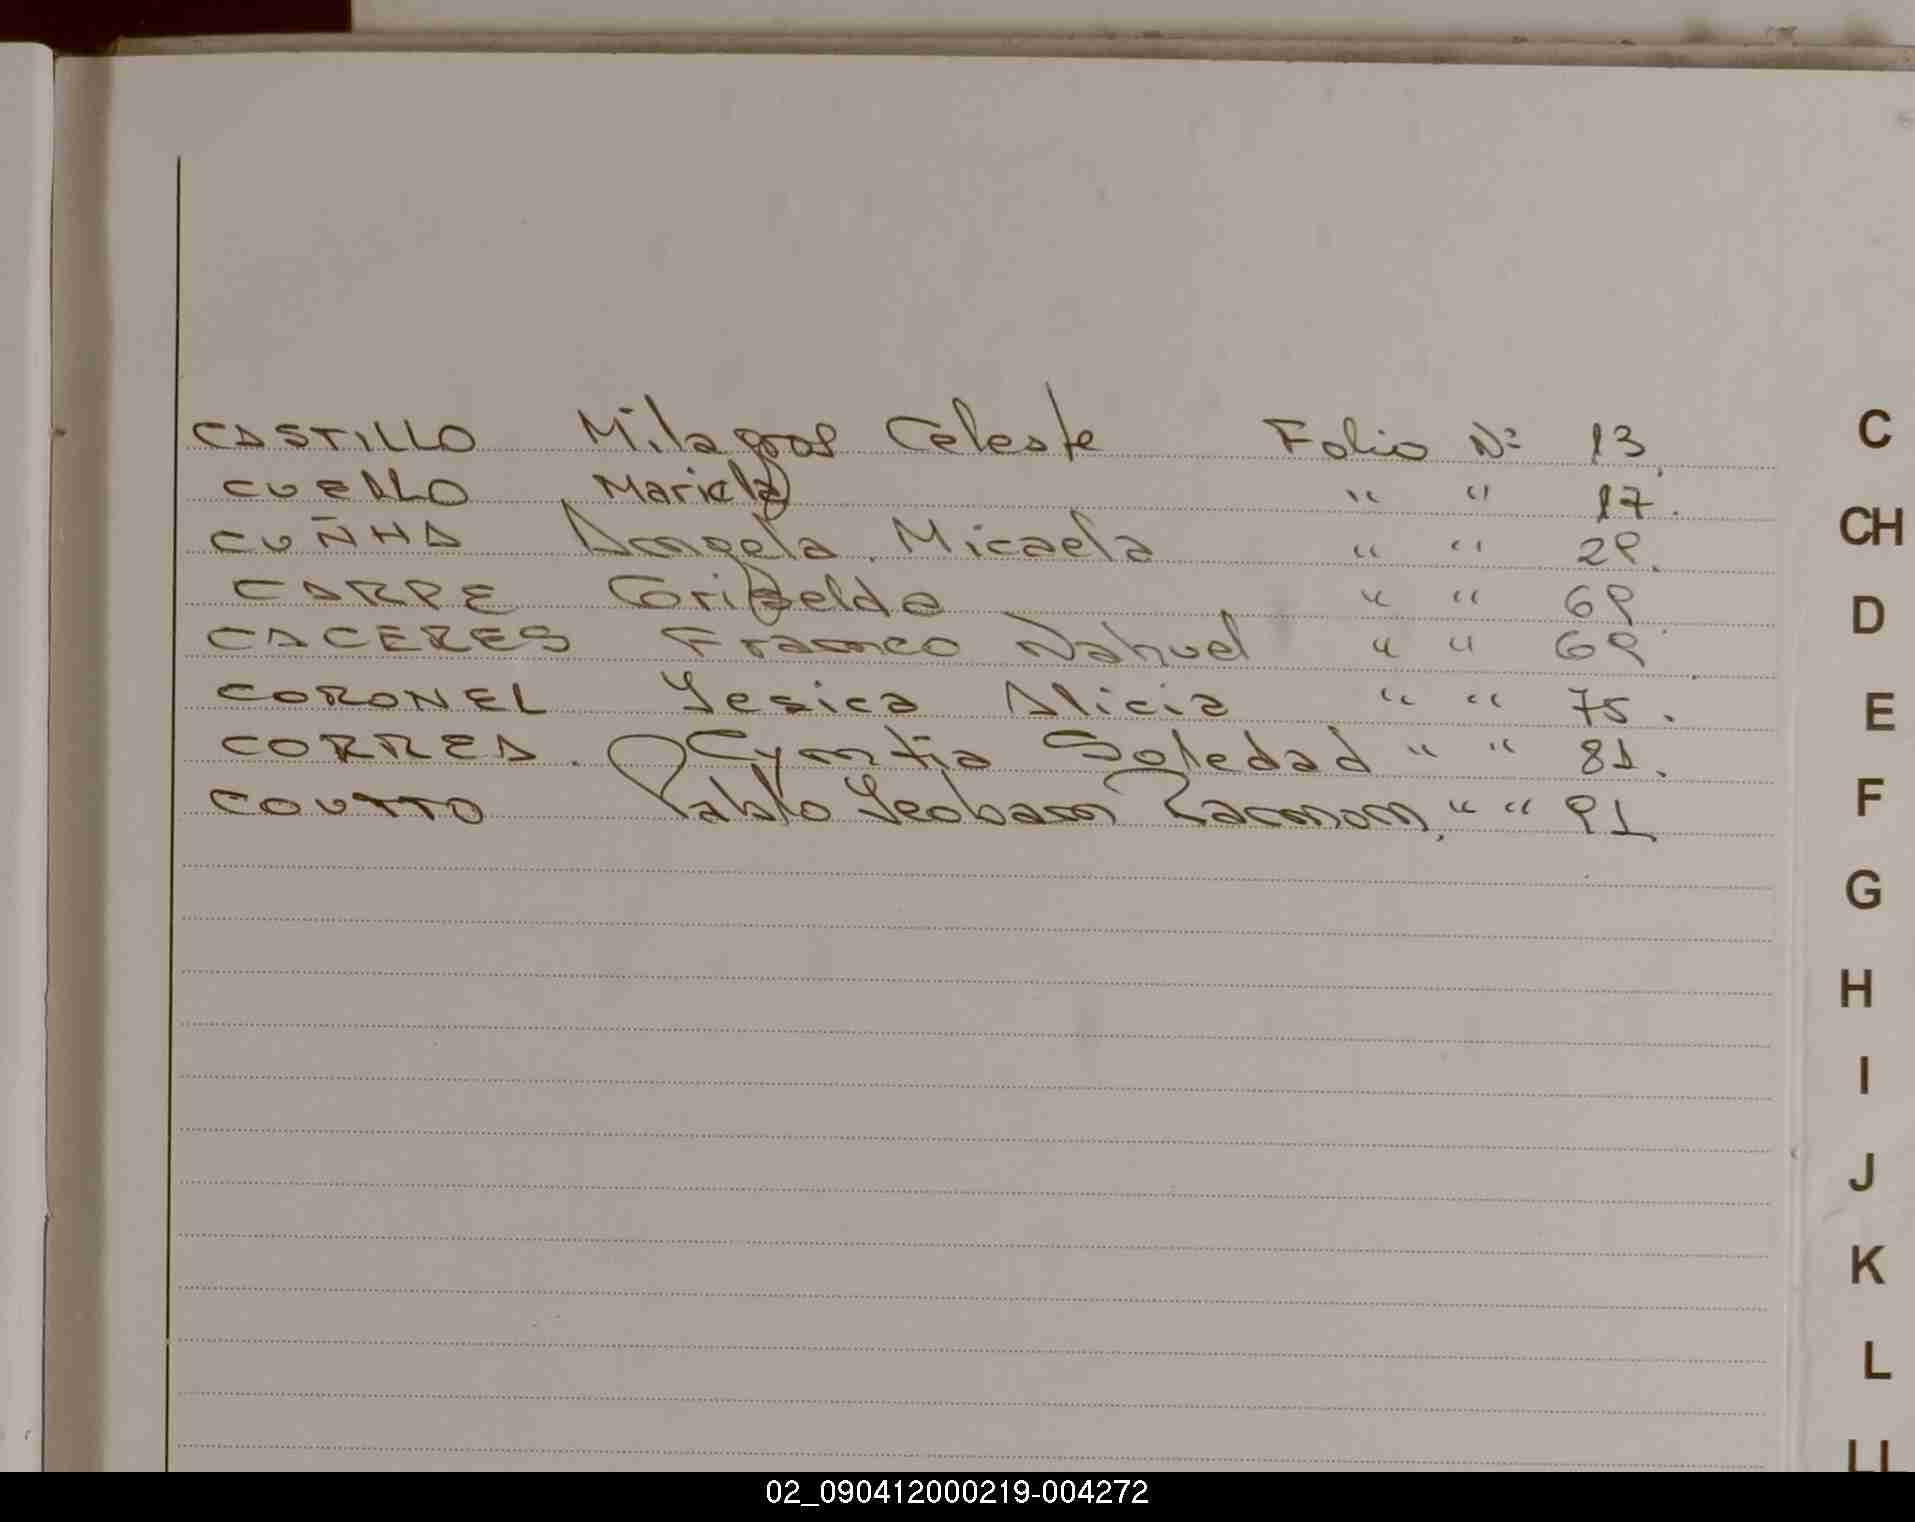 CASTILLO Milagros Celeste Folio Nº 13.
CUELLO Mariela " " 17.
CUÑHA Angela Micaela " " 29.
CARPE Griselda " " 69
CACERES Franco Nahuel " " 69
CORONEL Yesica Alicia " " 75.
CORREA. Cyntia Soledad " " 81.
COUTTO Pablo Ramon. " " 91
C
CH
D
E
F
G
H
I
J
K
L
LL
02_090412000219-004272